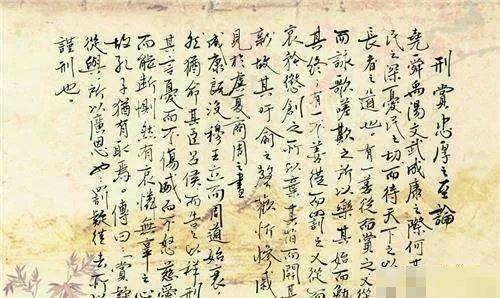 刑賞忠厚之至論
堯舜禹湯文武成康之際何其
民之深憂民之切而待天下之以
長者之道也有一善從而賞之又從
而詠歌嗟歎之所以樂其始而勉
其終有一不善從而罰之又從而
哀矜懲創之所以棄其舊而開其
新故其吁俞之聲歡忻慘戚
見於虞夏商周之書
成康既沒穆王立而周道始衰
然猶命其臣呂侯而告之以祥刑
其言憂而不傷威而不怒慈愛
而能斷惻然有哀憐無辜之心
故孔子猶有取焉。傳曰「賞疑
從與所以廣恩也罰疑從去所以
謹刑也。